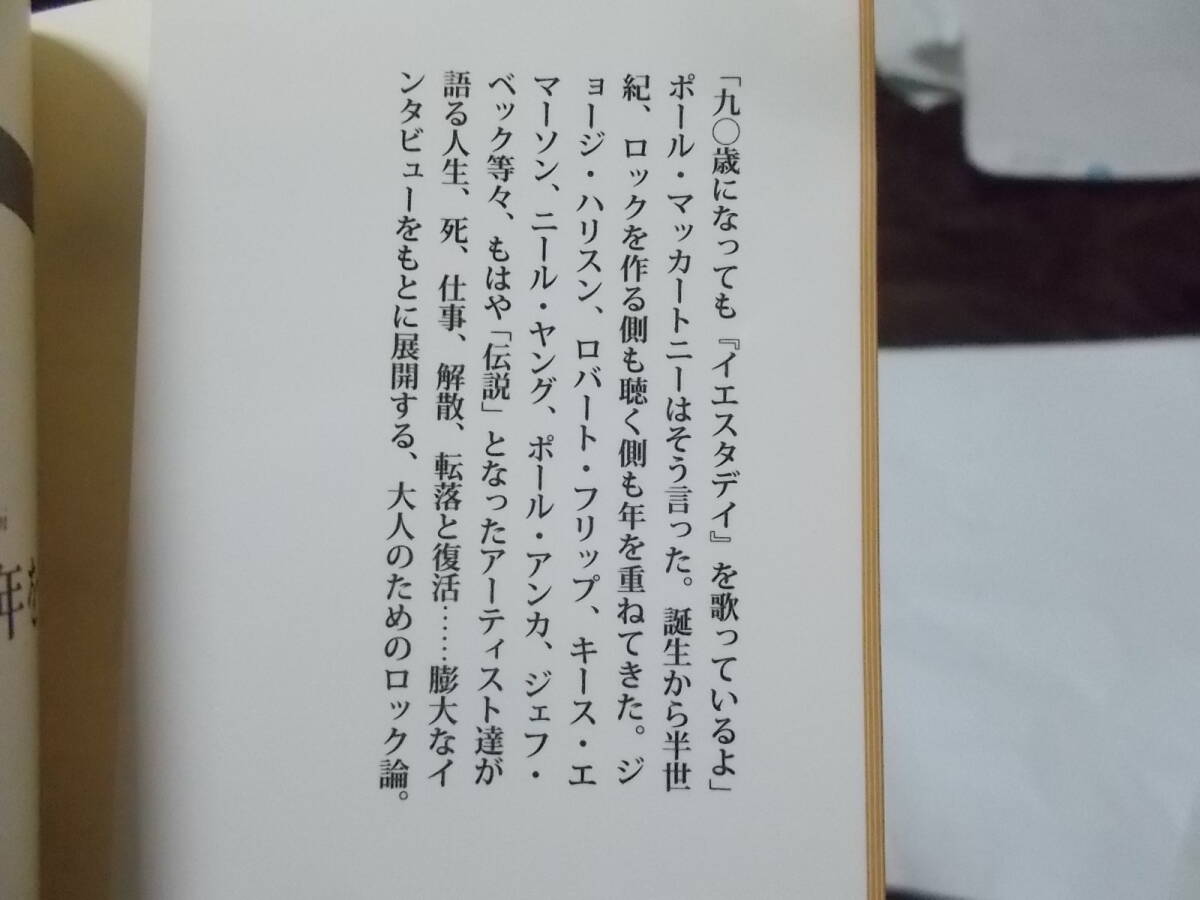 「九〇歳になっても『イエスタデイ』を歌っているよ」
ポール・マッカートニーはそう言った。誕生から半世
紀、ロックを作る側も聴く側も年を重ねてきた。ジ
ョージ・ハリスン、ロバート・フリップ、キース・エ
マーソン、ニール・ヤング、ポール・アンカ、ジェフ・
ベック等々、もはや「伝説」となったアーティスト達が
語る人生、死、仕事、解散、転落と復活……膨大なイ
ンタビューをもとに展開する、大人のためのロック論。
年を